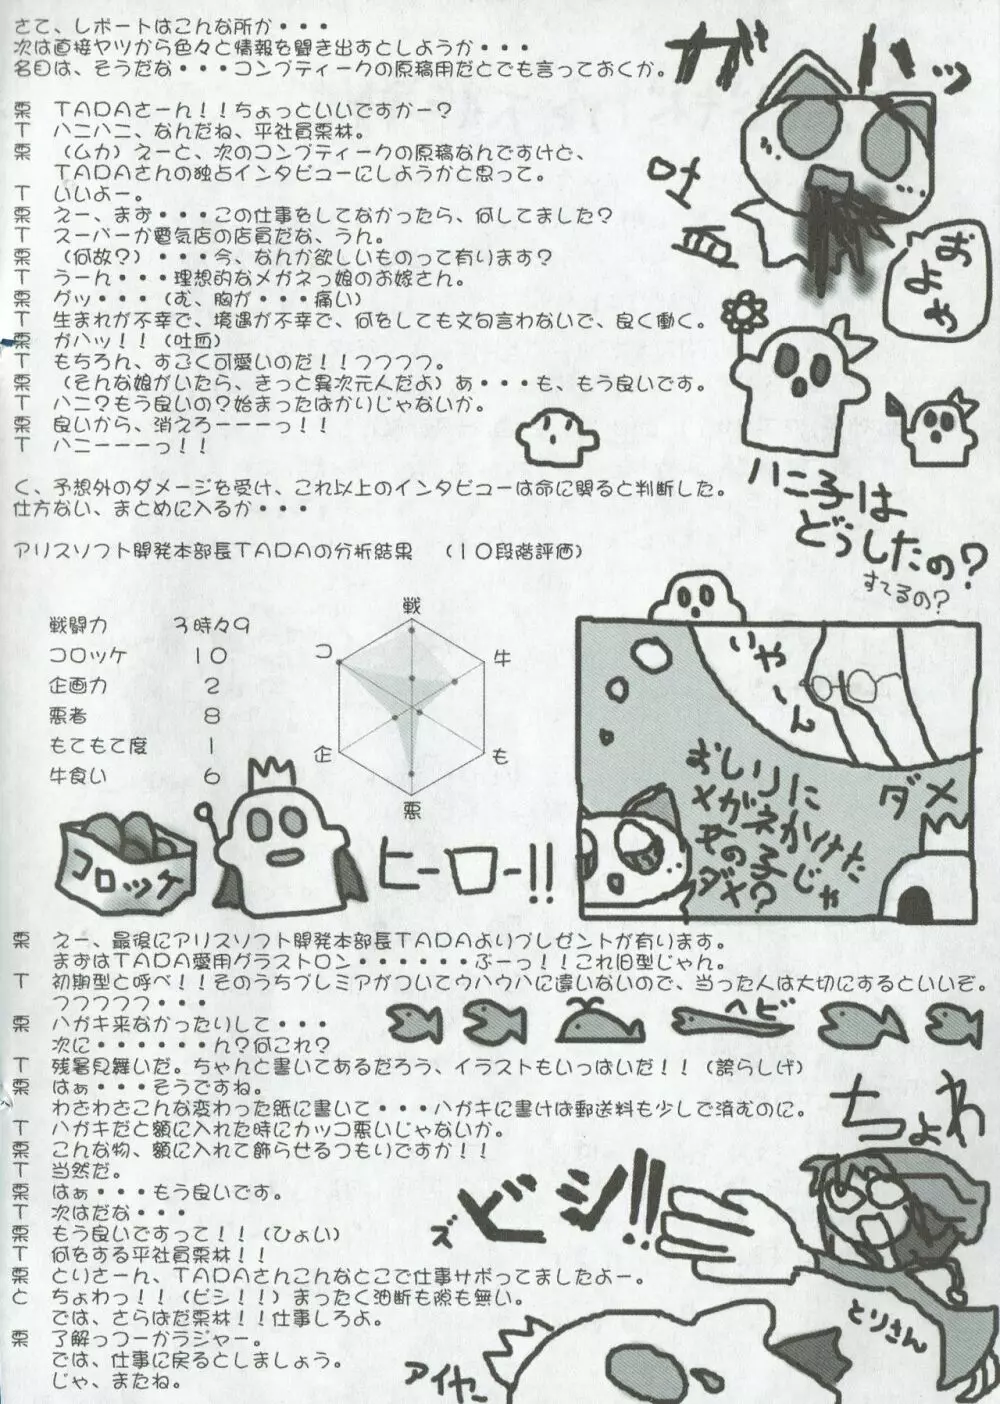 さて、レポートはこんな所か・・・
次は直接ヤツから色々と情報を聞き出すとしようか・・・
名目は、そうだな・・・コンプティークの原稿用だとでも言っておくか。
栗 TADAさーん！！ちょっといいですかー？
T ハニハニ、なんだね、平社員栗林。
栗 （ムカ）えーと、次のコンプティークの原稿なんですけど、
TADAさんの独占インタビューにしようかと思って。
T いいよー。
栗 えー、まず・・・この仕事をしてなかったら、何してました？
T スーパーか電気店の店員だな、うん。
栗 （何故？）・・・今、なんか欲しいものって有ります？
T うーん・・・理想的なメガネっ娘のお嫁さん。
栗 グッ・・・（む、胸が・・・痛い）
T 生まれが不幸で、境遇が不幸で、何をしても文句言わないで、良く働く。
栗 ガハッ！！（吐血）
T もちろん、すごく可愛いのだ！！フフフフ。
栗 （そんな娘がいたら、きっと異次元人だよ）あ・・・も、もう良いです。
T ハニ？もう良いの？始まったばかりじゃないか。
栗 良いから、消えろーーーっ！！
T ハニーーーっ！！
く、予想外のダメージを受け、これ以上のインタビューは命に関ると判断した。
仕方ない、まとめに入るか・・・
ガハッ
吐血
およよ
ハニ子は
どうしたの？
すてるの？
アリスソフト開発本部長TADAの分析結果 （10段階評価）
戦闘力 3時々9
コロッケ 10
企画力 2
悪者 8
もてもて度 1
牛食い 6
戦
牛
も
悪
企
コ
コロッケ
ヒーロー!!
いやーん
おしりに
メガネかけた
女の子じゃ
ダメ？
ダメ
栗 えー、最後にアリスソフト開発本部長TADAよりプレゼントが有ります。
まずはTADA愛用グラストロン・・・・・・ぶーっ！！これ旧型じゃん。
T 初期型と呼べ！！そのうちプレミアがついてウハウハに違いないので、当った人は大切にするといいぞ。
フフフフフ・・・
栗 ハガキ来なかったりして・・・
次に・・・・・・ん？何これ？
T 残暑見舞いだ。ちゃんと書いてあるだろう、イラストもいっぱいだ！！（誇らしげ）
栗 はぁ・・・そうですね。
わざわざこんな変わった紙に書いて・・・ハガキに書けば郵送料も少しで済むのに。
T ハガキだと額に入れた時にカッコ悪いじゃないか。
栗 こんな物、額に入れて飾らせるつもりですか！！
T 当然だ。
栗 はぁ・・・もう良いです。
T 次はだな・・・
栗 もう良いですって！！（ひょい）
T 何をする平社員栗林！！
栗 とりさーん、TADAさんこんなとこで仕事サボってましたよー。
と ちょわっ！！（ビシ！！）まったく油断も隙も無い。
では、さらばだ栗林！！仕事しろよ。
栗 了解っつーかラジャー。
では、仕事に戻るとしましょう。
じゃ、またね。
ヘビ
ちょわ
ズビシ!!
とりさん
アイヤー